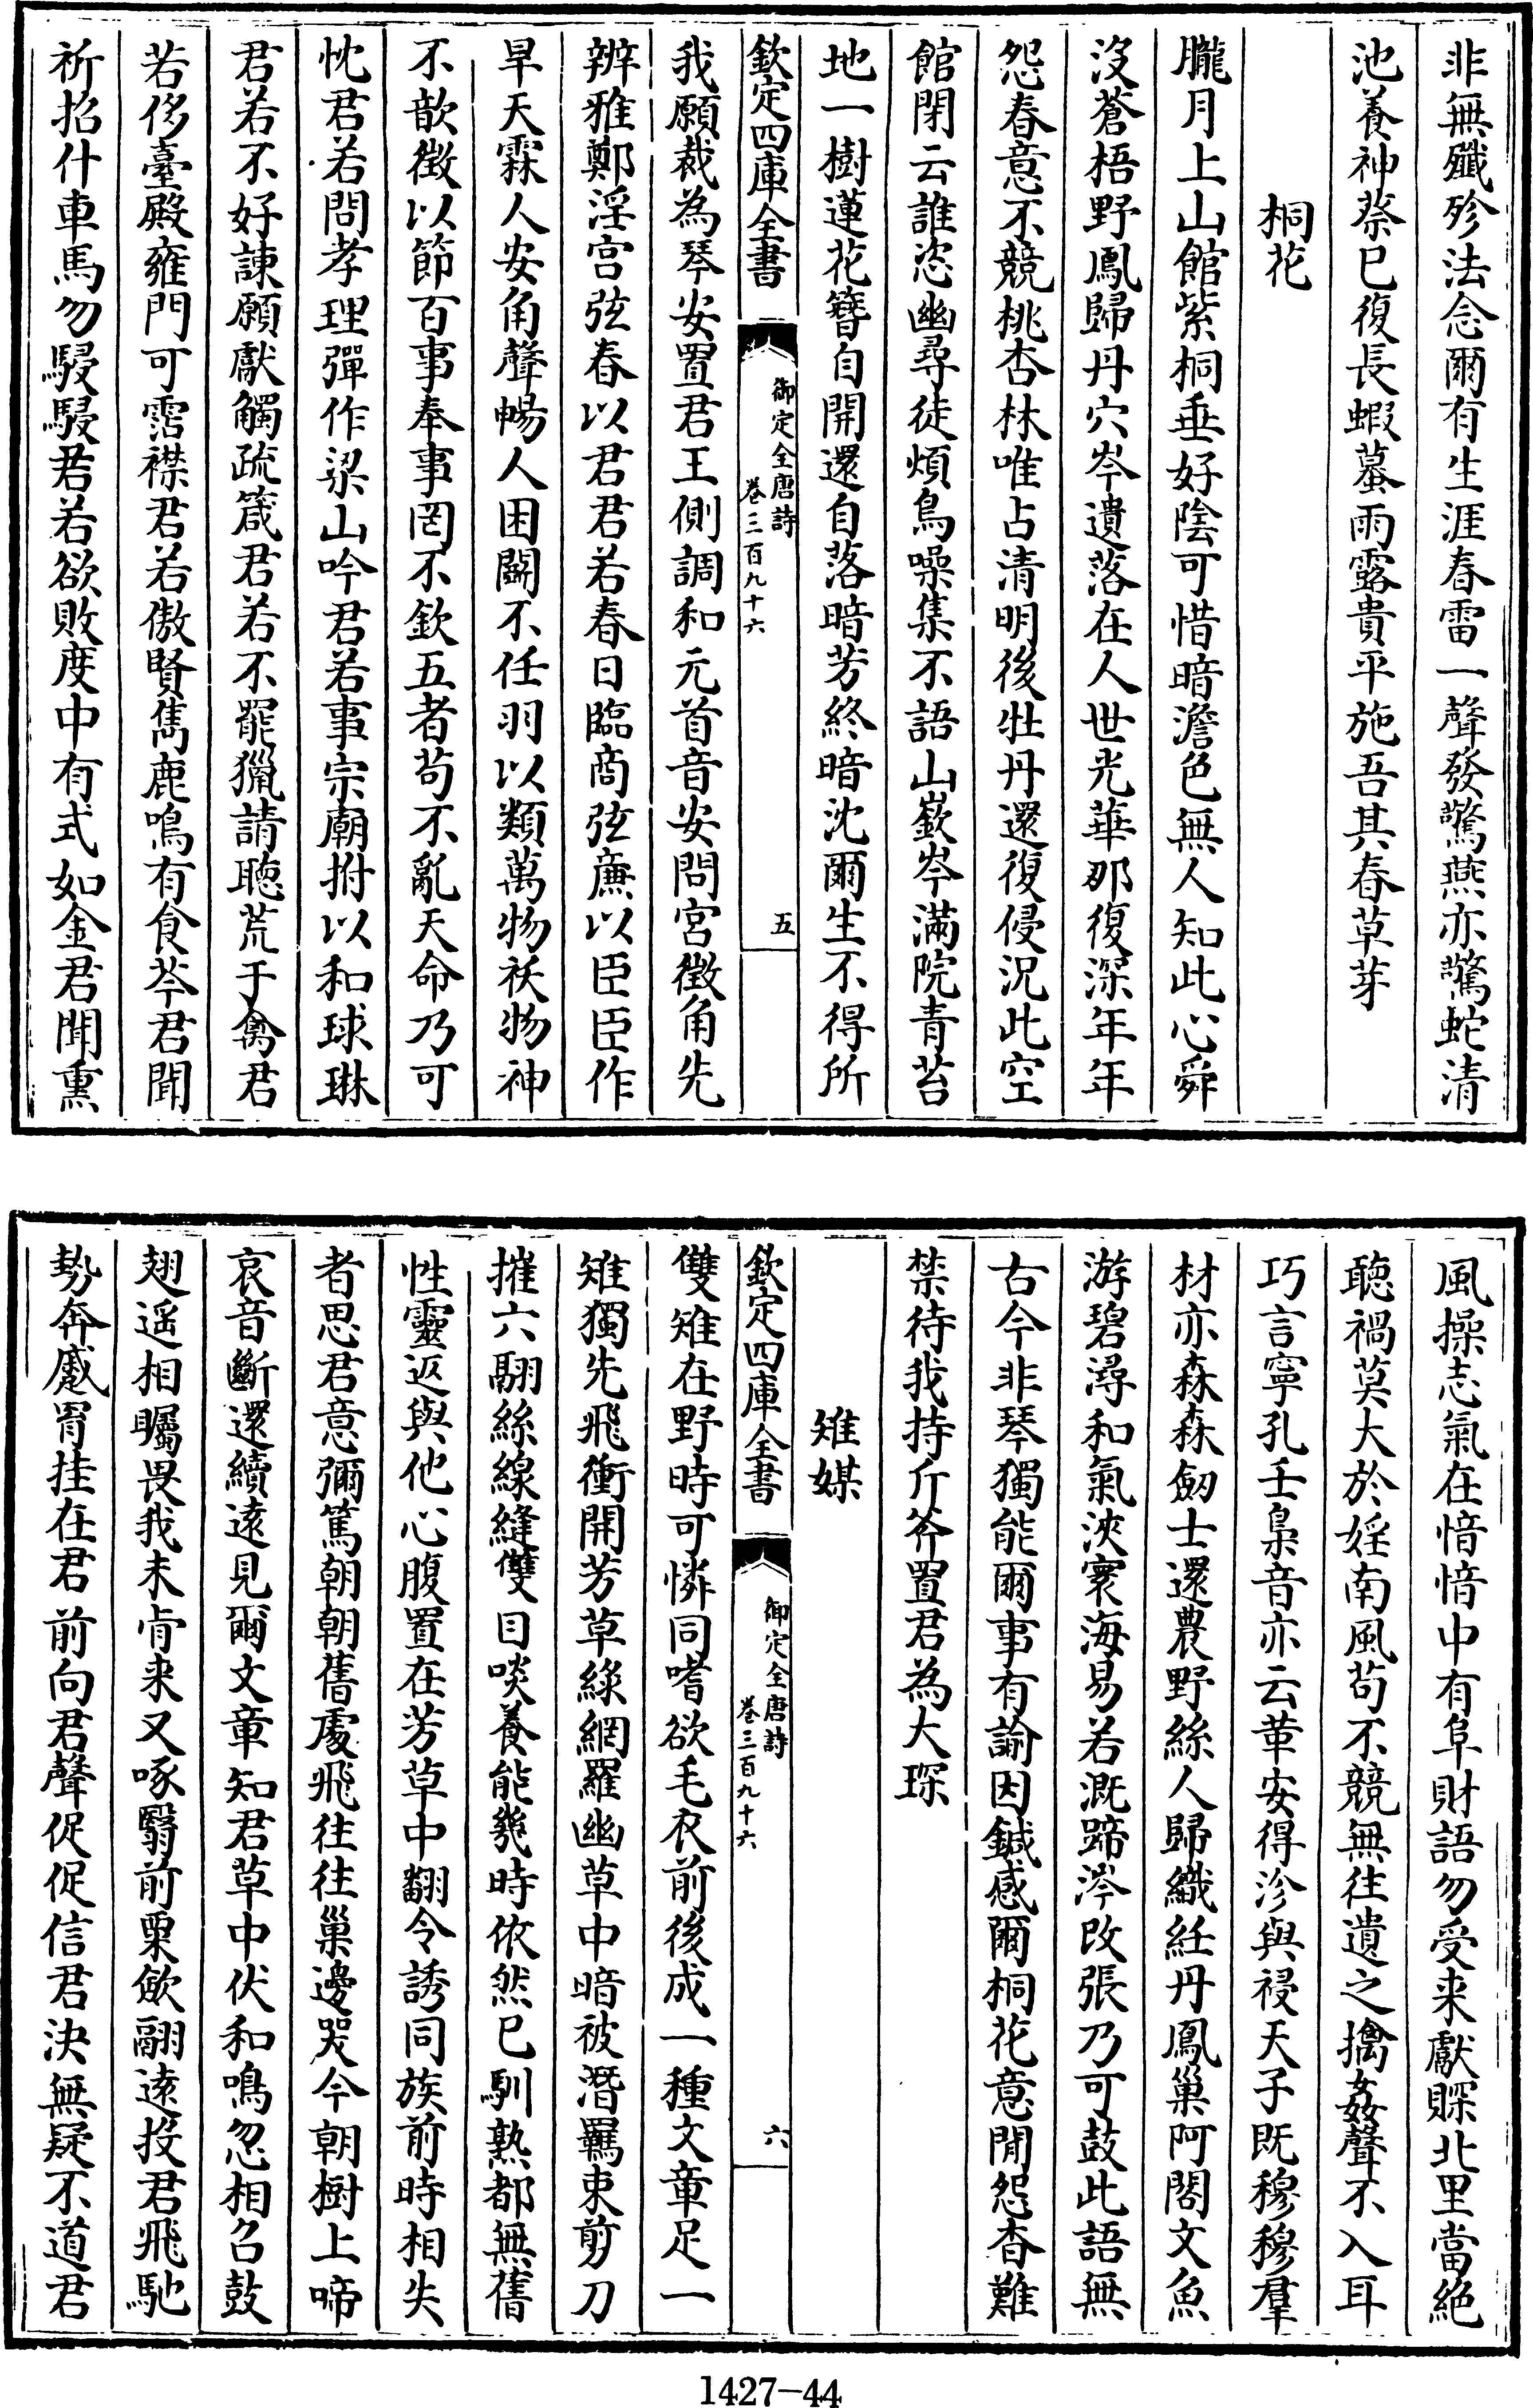 非無殲殄法念爾有生涯春雷一聲發驚燕亦驚蛇清
池養神蔡已復長蝦蟇雨露貴平施吾其春草芽
桐花
朧月上山館紫桐垂好陰可惜暗澹色無人知此心舜
沒蒼梧野鳳歸丹穴岑遺落在人世光華那復深年年
怨春意不競桃杏林唯占清明後牡丹還復侵況此空
館閉云誰恣幽尋徒煩鳥噪集不語山嶔岑滿院青苔
地一樹蓮花簪自開還自落暗芳終暗沈爾生不得所
欽定四庫全書
御定全唐詩
卷三百九十六
五
我願裁為琴安置君王側調和元首音安問宮徵角先
辨雅鄭淫宮弦春以君君若春日臨商弦廉以臣臣作
旱天霖人安角聲暢人困鬭不任羽以類萬物祅物神
不歆徵以節百事奉事罔不欽五者苟不亂天命乃可
忱君若問孝理彈作梁山吟君若事宗廟拊以和球琳
君若不好諫願獻觸疏箴君若不罷獵請聽荒于禽君
若侈臺殿雍門可霑襟君若傲賢雋鹿鳴有食芩君聞
祈招什車馬勿駸駸君若欲敗度中有式如金君聞熏
風操志氣在愔愔中有阜財語勿受来獻賝北里當絕
聽禍莫大於婬南風苟不競無往遺之擒姦聲不入耳
巧言寧孔壬梟音亦云革安得沴與祲天子既穆穆羣
材亦森森劒士還農野絲人歸織紝丹鳳巢阿閣文魚
游碧潯和氣浹寰海易若溉蹄涔改張乃可鼓此語無
古今非琴獨能爾事有諭因鍼感爾桐花意閒怨杳難
禁待我持斤斧置君為大琛
雉媒
欽定四庫全書
御定全唐詩
卷三百九十六
六
雙雉在野時可憐同嗜欲毛衣前後成一種文章足一
雉獨先飛衝開芳草綠網羅幽草中暗被潛羈束剪刀
摧六翮絲線縫雙目啖養能幾時依然已馴熟都無舊
性靈返與他心腹置在芳草中翻令誘同族前時相失
者思君意彌篤朝朝舊處飛往往巢邊哭今朝樹上啼
哀音斷還續遠見爾文章知君草中伏和鳴忽相召鼓
翅遥相矚畏我未肯来又啄翳前粟斂翮遠投君飛馳
勢奔蹙罥挂在君前向君聲促促信君決無疑不道君
1427-44